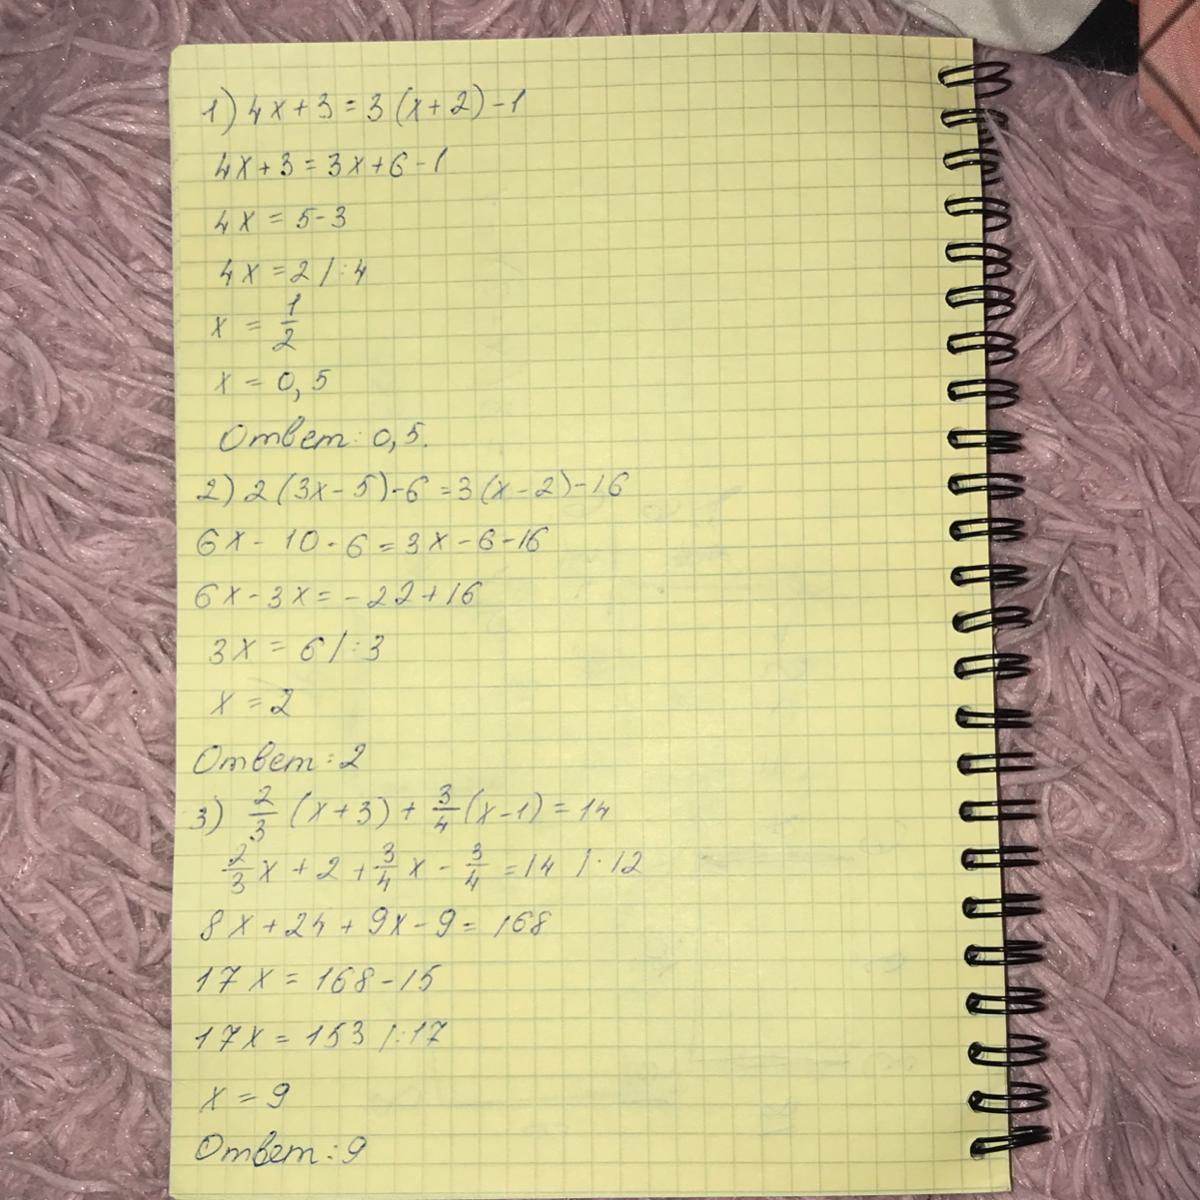 1) 4x+3=3(x+2)-1
4x+3=3x+6-1
4x=5-3
4x=2 /:4
x=1/2
x=0,5
Ответ: 0,5.
2) 2(3x-5)-6=3(x-2)-16
6x-10-6=3x-6-16
6x-3x=-22+16
3x=6 /:3
x=2
Ответ: 2
3) 2/3(x+3)+3/4(x-1)=14
2/3x+2+3/4x-3/4=14 /·12
8x+24+9x-9=168
17x=168-15
17x=153 /:17
x=9
Ответ: 9